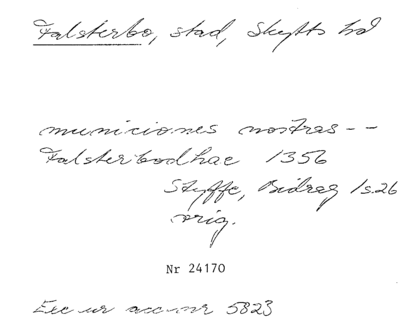 Falsterbo, stad, Skytts hd
municiones nostras --
Falsterbodhae 1356
Styffe, Bidrag 1 s. 26
orig.
Nr 24170
Exc ur acc nr 5823